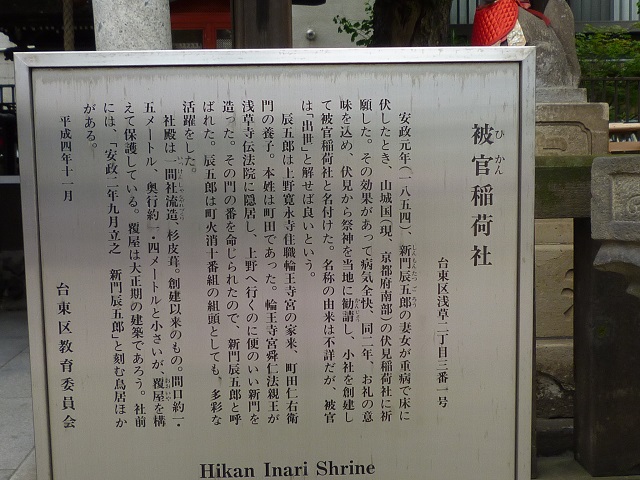 被官稲荷社
ひかん
台東区浅草二丁目三番一号
安政元年(一八五四)、新門辰五郎の妻女が重病で床に
しんもんたつごろう
伏したとき、山城国(現、京都府南部)の伏見稲荷社に祈
願した。その効果があって病気全快、同二年、お礼の意
味を込め、伏見から祭神を当地に勧請し、小社を創建し
かんじょう
て被官稲荷社と名付けた。名称の由来は不詳だが、被官
は「出世」と解せば良いという。
辰五郎は上野寛永寺住職輪王寺宮の家来、町田仁右衛
門の養子。本姓は町田であった。輪王寺宮舜仁法親王が
浅草寺伝法院に隠居し、上野へ行くのに便のいい新門を
造った。その門の番を命じられたので、新門辰五郎と呼
ばれた。辰五郎は町火消十番組の組頭としても、多彩な
活躍をした。
社殿は一間社流造、杉皮葺。創建以来のもの。間口約一・
五メートル、奥行約一・四メートルと小さいが、覆屋を構
えて保護している。覆屋は大正期の建築であろう。社前
には、「安政二年九月立之 新門辰五郎」と刻む鳥居ほか
がある。
平成四年十一月
台東区教育委員会
Hikan Inari Shrine